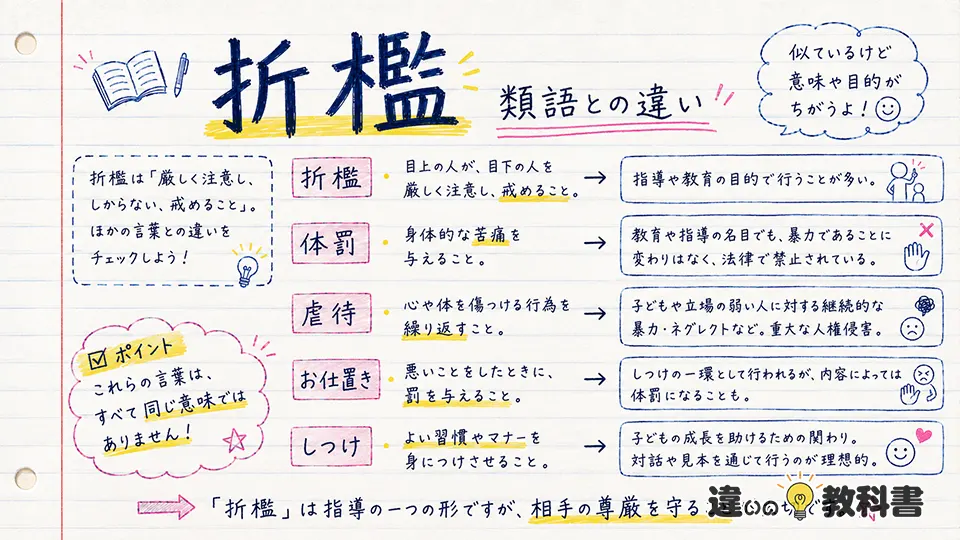 折檻 類語との違い!!
似ているけど
意味や目的が
ちがうよ!
折檻は「厳しく注意し、
しからない、戒めること」。
ほかの言葉との違いを
チェックしよう!
折檻
目上の人が、目下の人を
厳しく注意し、戒めること。
→ 指導や教育の目的で行うことが多い。
体罰
身体的な苦痛を
与えること。
→ 教育や指導の名目でも、暴力であることに
変わりはなく、法律で禁止されている。
虐待
心や体を傷つける行為を
繰り返すこと。
→ 子どもや立場の弱い人に対する継続的な
暴力・ネグレクトなど。重大な人権侵害。
お仕置き
悪いことをしたときに、
罰を与えること。
→ しつけの一環として行われるが、内容によっては
体罰になることも。
しつけ
よい習慣やマナーを
身につけさせること。
→ 子どもの成長を助けるための関わり。
対話や見本を通じて行うのが理想的。
ポイント
これらの言葉は、
すべて同じ意味では
ありません!
「折檻」は指導の一つの形ですが、相手の尊厳を守る
違いの教科書